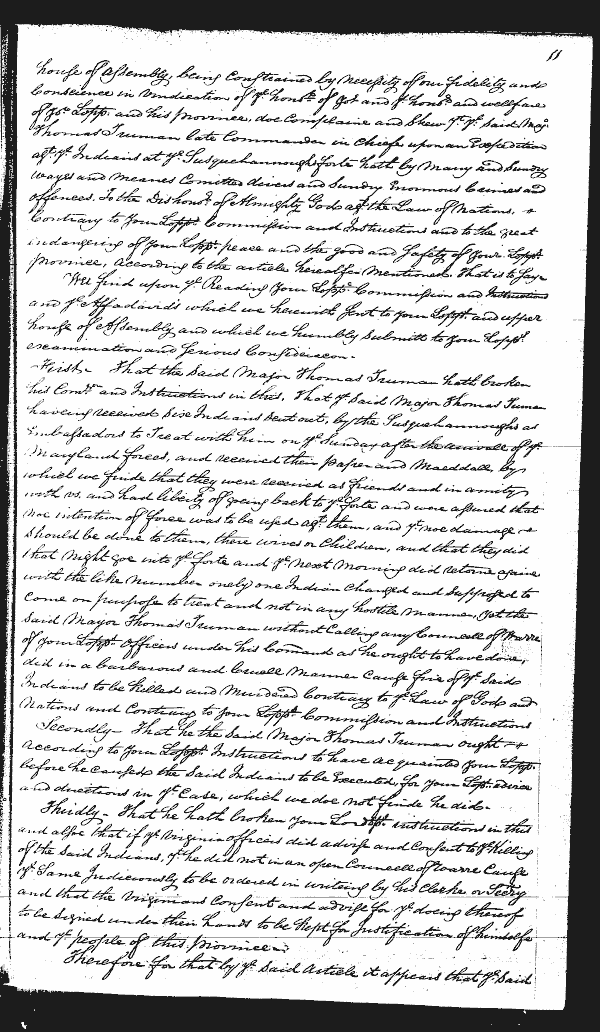 11
house of Assembly, being Constrained by necessity of our fidelity and
Conscience in vindication of ye honr of God and ye honr and wellfare
of yor Lopp. and his province, doe Complaine and Shew yt ye said Majr
Thomas Truman late Commander in Chiefe upon an Expedition
agt ye Indians at ye Susquehannough forte hath by Many and Sundry
wayes and Meanes Comitted divers and Sundry Enormous Crimes and
offences. To the Dishonr of Almighty God agt the Law of Nations, &
Contrary to your Lopps Commission and Instructions and to the great
indangering of your Lopps peace and the good and Safety of your Lopps
province, according to the article hereafter Mentioned. That is to Say.
Wee find upon ye Reading your Lopps Commission and Instructions
and ye Affadavids which we herewith Sent to your Lopp. and upper
house of Assembly and which we humbly Submitt to your Lopps
examination and Serious Consideracon.
First. That the Said Major Thomas Truman hath broken
his Comn and Instructions in this, That ye Said Major Thomas Truman
haveing received Six Indians Sent out, by the Susquehannoughs as
Embassadors to Treat with him on ye Sunday after the arrivall of ye
Maryland forces, and received their paper and Maeddall, by
which we finde that they were received as friends and in amity
with us. and had liberty of going back to ye forte and were assured that
noe intention of force was to be used agt them, and yt noe damage
should be done to them, there wives or Children, and that they did
that Night goe into ye forte and ye next Morning did returne againe
with the like number onely one Indian Changed and Supposed to
Come on purpose to treat and not in any hostile manner, yet the
said Mayor Thomas Truman without Calling any Councell of Warre
of your Lopps officers under his Comand as he ought to have done,
did in a barbarous and Cruell Manner Cause five of ye Said
Indians to be killed and Murdered Contrary to ye Law of God and
Nations and Contrary to your Lopps Commission and Instructions
Secondly - That he the Said Major Thomas Truman ought
according to your Lopps Instructions to have acquainted your Lopp.
before he caused the Said Indians to be Executed, for your Lops advice
and directions in ye Case, which we doe not finde he did.
Thirdly - That he hath broken your Lordsps instructions in this
and alsoe that if ye Virginia officers did advise and Consent to ye killing
of the Said Indians, yt he did not in an open Councell of warre Cause
ye Same Judiciously to be ordered in writeing by his Clerke or Secry
and that the Virginians Consent and advise for ye doeing thereof
to be Signed under their hands to be kept for Justification of himselfe
and ye people of this province.
Therefore for that by ye Said Article it appears that ye Said